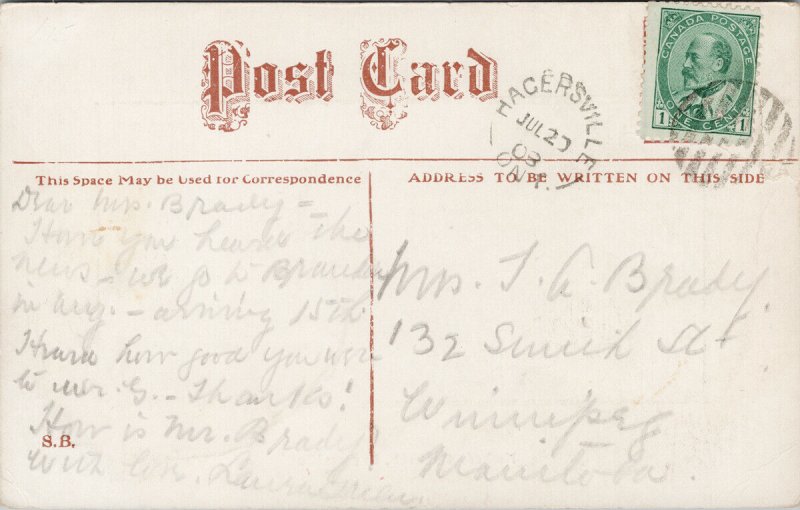 Post Card
CANADA POSTAGE
1 ONE CENT 1
HAGERSVILLE
JUL 2
08
ONT.
This Space May be Used for Correspondence
ADDRESS TO BE WRITTEN ON THIS SIDE
Dear Mrs. Brady –
Have you heard the
news – we go to Brandon
in Aug. – arriving 15th
Heard how good you were
to Mr. G. – Thanks!
How is Mr. Brady
With love, Laura
S.B.
Mrs. J. A. Brady
132 Smith St
Winnipeg
Manitoba.